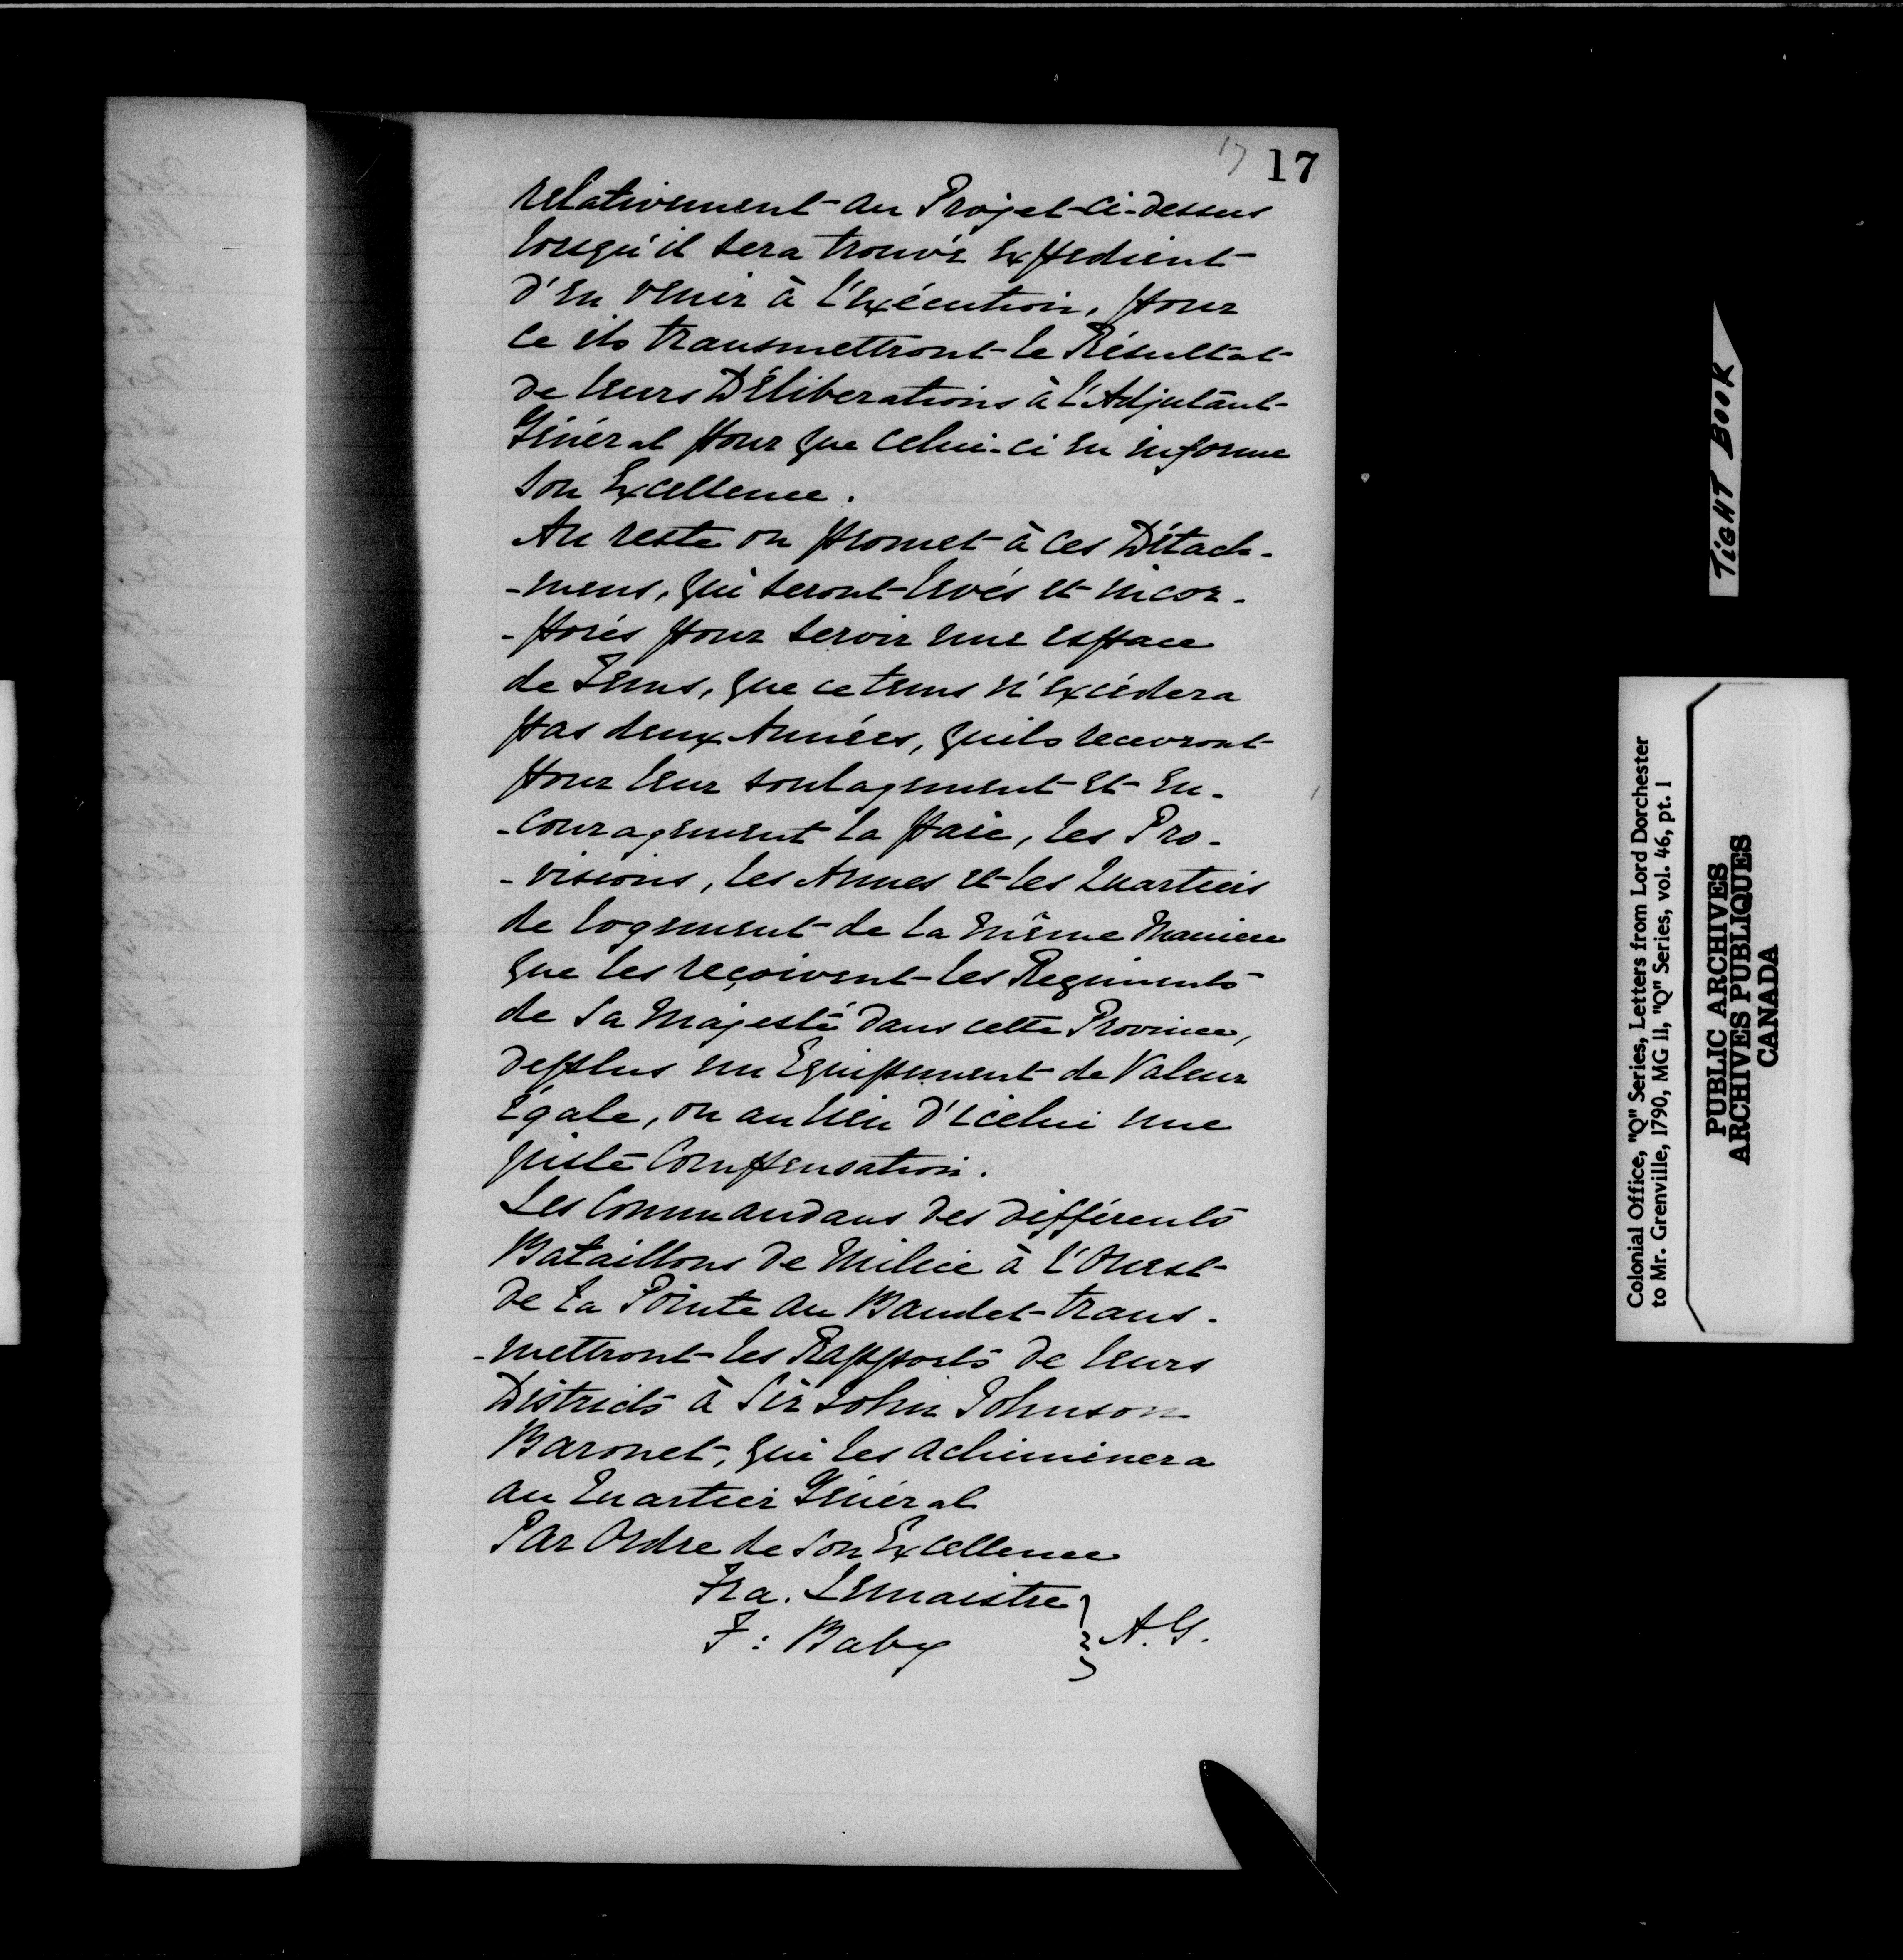 17 17
relativement au Projet ci-dessus
lorsqu'il sera trouvé Expedient
d'en venir à l'Exécution, pour
ce ils transmettront le Résultat
de leurs Déliberations à l'Adjutant
Général pour que celui-ci en informe
Son Excellence.
Au reste on promet à ces Détach-
-mens, qui seront levés et incor-
-porés pour servir une espace
de Tems, que ce tems n'excédera
pas deux Années, quils recevront
pour leur soulagement et en-
-couragement la paie, les Pro-
-visions, les Armes et les Quartiers
de logement de la même Maniere
que les reçoivent les Regiments
de Sa Majesté dans cette Province,
deplus un Equipement de Valeur
Egale, ou au lieu d'icelui une
juste Compensation.
Les Commandans des différents
Bataillons de Milice à l'Ouest
de la Pointe au Baudet trans-
-mettront les Rapports de leurs
Districts à Sir John Johnson
Baronet, qui les acheminera
au Quartier Général
Par Ordre de Son Excellence
Fra. Lemaistre
F: Baby } A.G.
TIGHT BOOK
Colonial Office, "Q" Series, Letters from Lord Dorchester
to Mr. Grenville, 1790, MG 11, "Q" Series, vol. 46, pt. 1
PUBLIC ARCHIVES
ARCHIVES PUBLIQUES
CANADA